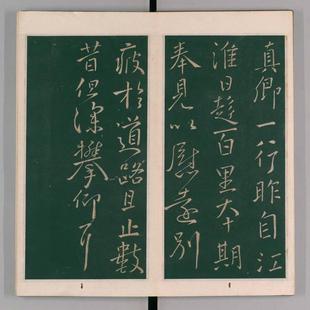 真卿一行昨自江
淮日趨百里夲期
奉見以慰遠別
疲於道路且止數
昔但深攀仰耳